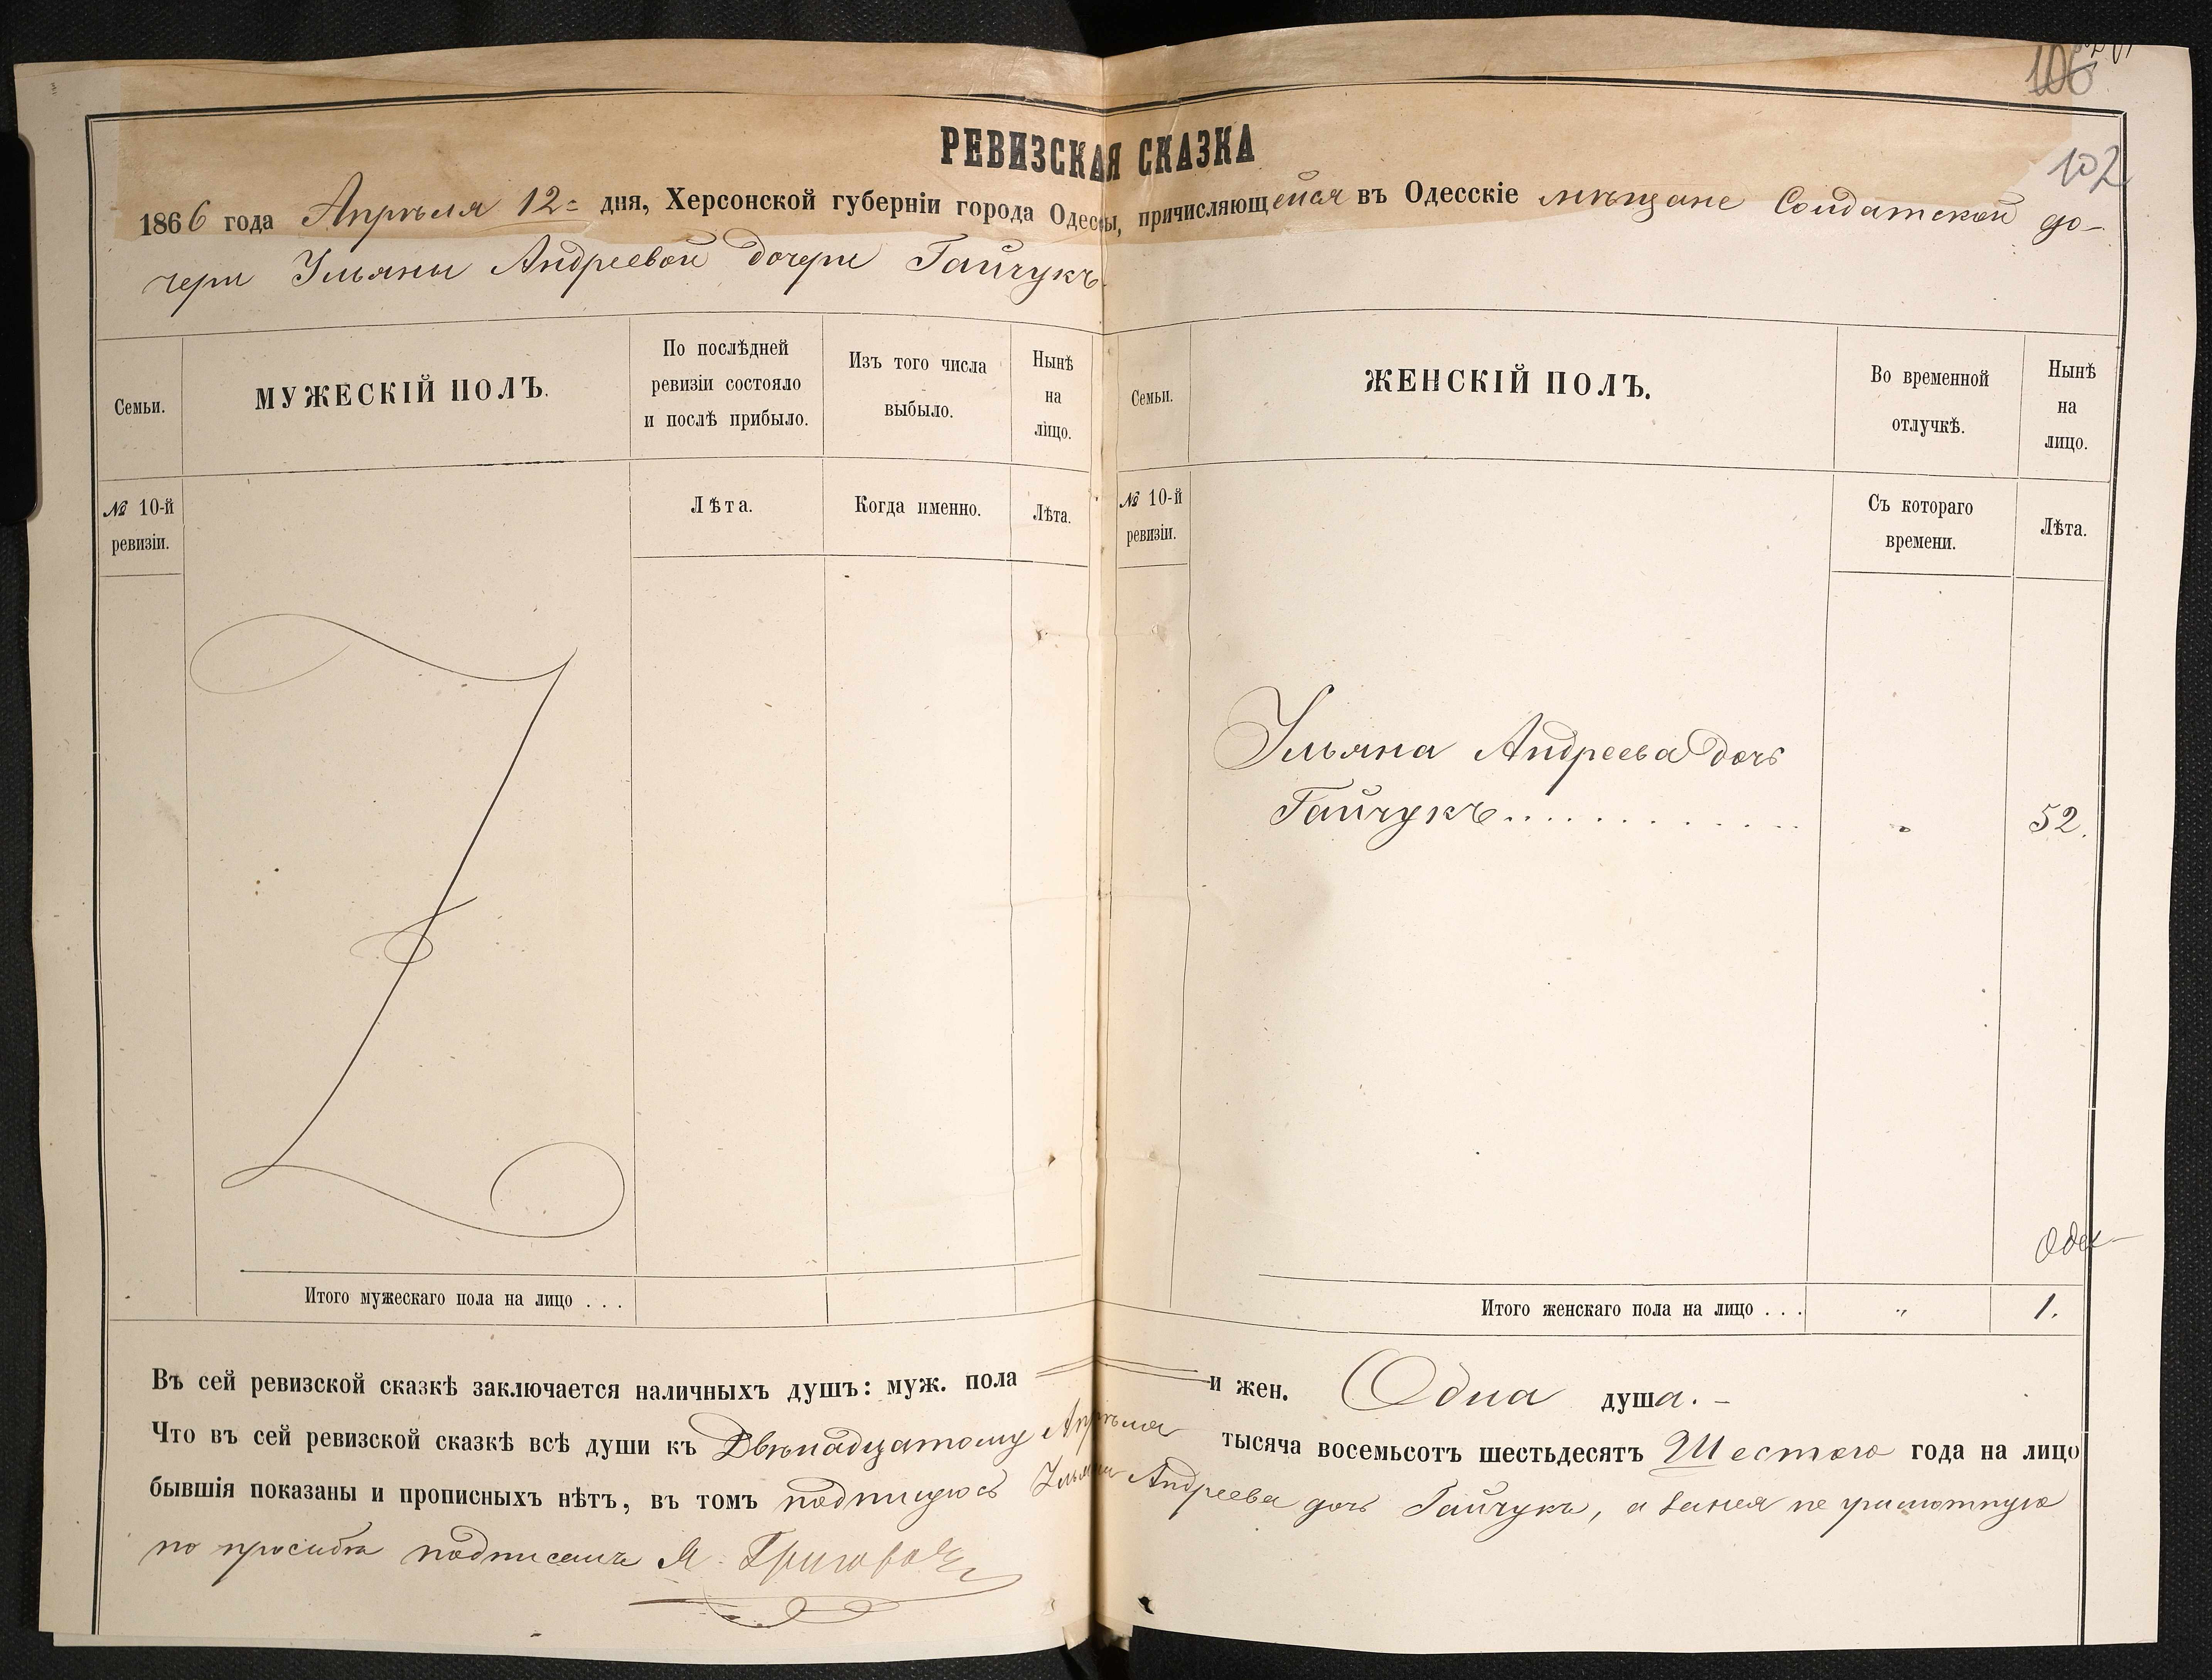 106
102
РЕВИЗСКАЯ СКАЗКА
1866 года Апрѣля 12 = дня, Херсонской губерніи города Одессы, причисляющейся въ Одесскіе мѣщане Солдатской до-
чери Ульяны Андреевой дочери Гайчукъ
Семьи.
МУЖЕСКІЙ ПОЛЪ.
По послѣдней
ревизіи состояло
и послѣ прибыло.
Изъ того числа
выбыло.
Нынѣ
на
лицо.
Семьи.
ЖЕНСКІЙ ПОЛЪ.
Во временной
отлучкѣ.
Нынѣ
на
лицо.
№ 10-й
ревизіи.
Лѣта.
Когда именно.
Лѣта.
№ 10-й
ревизіи.
Съ котораго
времени.
Лѣта.
Ульяна Андреева дочь
Гайчукъ............ „ 52.
Итого мужескаго пола на лицо . . .
Итого женскаго пола на лицо . . . „ 1.
Въ сей ревизской сказкѣ заключается наличныхъ душъ: муж. пола и жен. Одна душа. -
Что въ сей ревизской сказкѣ всѣ души къ Двѣнадцатому Апрѣля тысяча восемьсотъ шестьдесятъ Шестого года на лицо
бывшія показаны и прописныхъ нѣтъ, въ томъ подпишуюсь Ульяна Андреева дочь Гайчукъ, а занея не грамотную
по просьбѣ подписалъ Я.